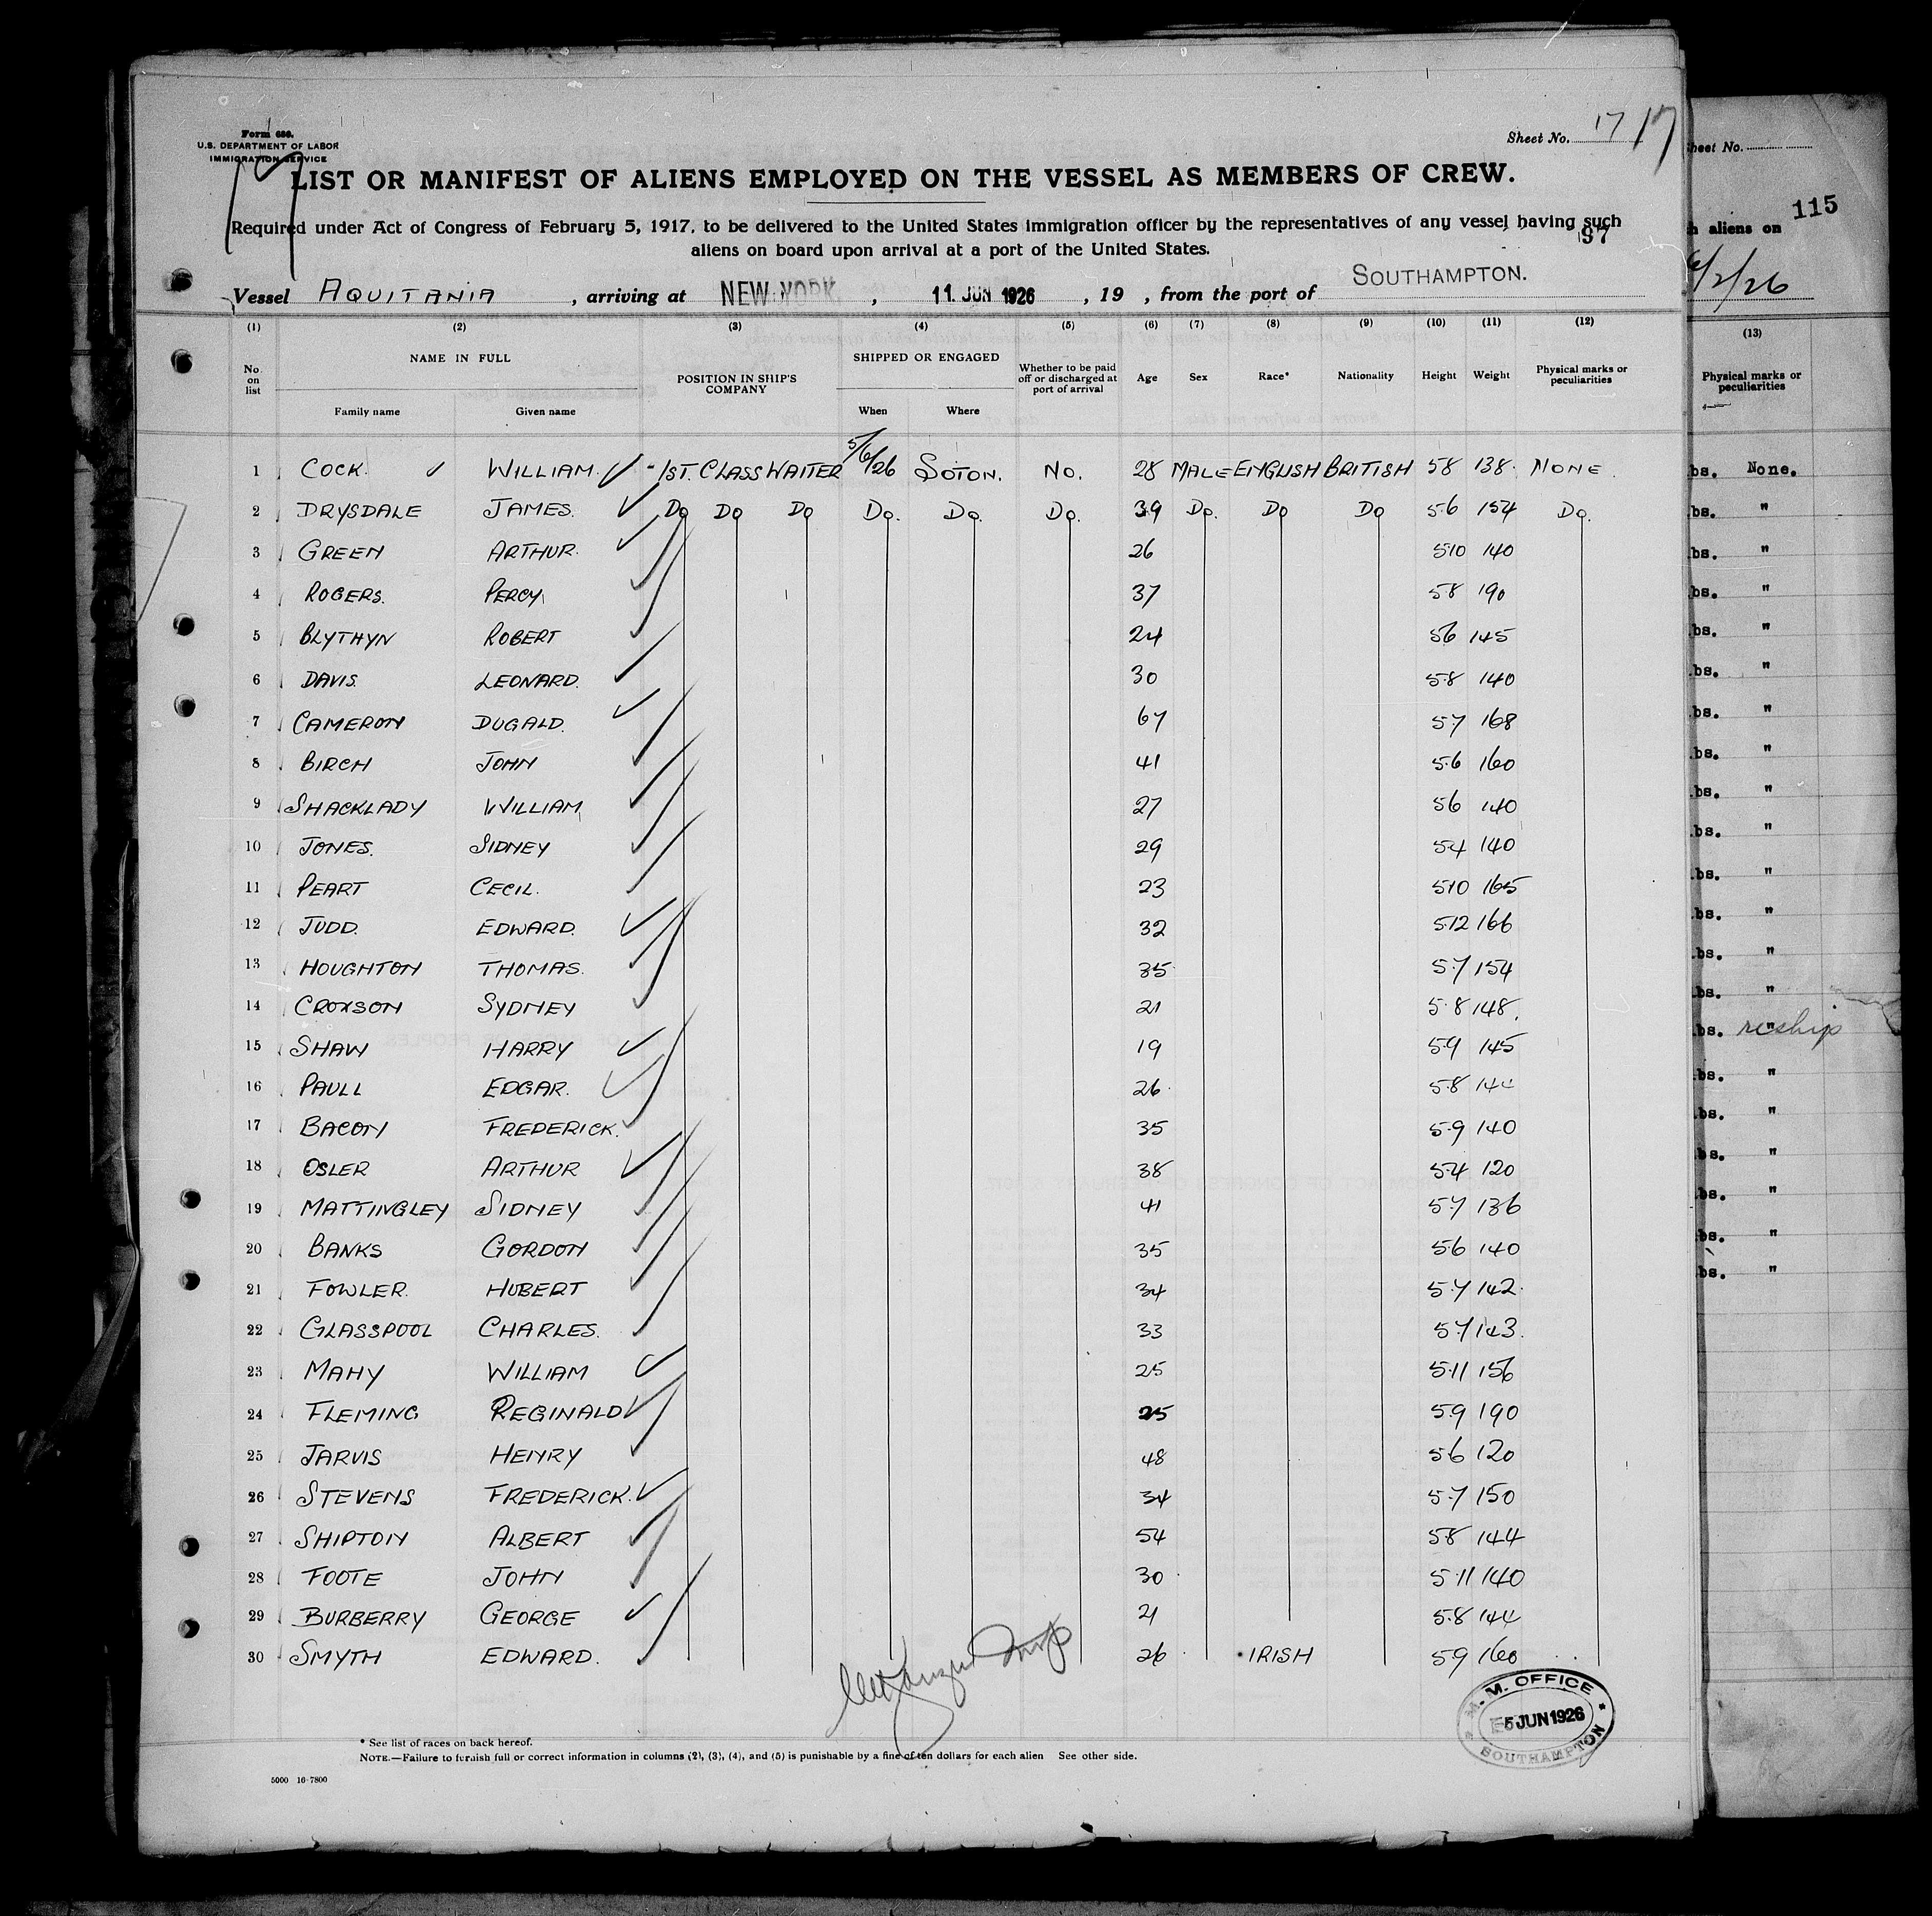 Form 680.
U.S. DEPARTMENT OF LABOR
IMMIGRATION SERVICE
Sheet No. 17 17
17
LIST OR MANIFEST OF ALIENS EMPLOYED ON THE VESSEL AS MEMBERS OF CREW.
Required under Act of Congress of February 5, 1917, to be delivered to the United States immigration officer by the representatives of any vessel having such
aliens on board upon arrival at a port of the United States.
97
Vessel AQUITANIA, arriving at NEW YORK, 11 JUN 1926, 19 , from the port of SOUTHAMPTON.
(1) (2) (3) (4) (5) (6) (7) (8) (9) (10) (11) (12)
No. on list NAME IN FULL POSITION IN SHIP'S COMPANY SHIPPED OR ENGAGED Whether to be paid off or discharged at port of arrival Age Sex Race* Nationality Height Weight Physical marks or peculiarities
Family name Given name When Where
1 COCK. WILLIAM. 1ST. CLASS WAITER 5/6/26 SOTON. NO. 28 MALE ENGLISH BRITISH 58 138. NONE.
2 DRYSDALE JAMES. DO DO DO DO. DO. DO. 39 DO. DO DO 5.6 154 DO.
3 GREEN ARTHUR. 26 510 140
4 ROGERS. PERCY 37 5.8 190
5 BLYTHYN ROBERT 24 56 145
6 DAVIS. LEONARD. 30 5.8 140
7 CAMERON DUGALD. 67 5.7 168
8 BIRCH JOHN 41 5.6 160
9 SHACKLADY WILLIAM 27 56 140
10 JONES. SIDNEY 29 5.4 140
11 PEART CECIL. 23 5.10 165
12 JUDD. EDWARD. 32 5.12 166
13 HOUGHTON THOMAS. 35 5.7 154
14 CROXSON SYDNEY 21 5.8 148.
15 SHAW HARRY 19 5.9 145
16 PAULL EDGAR. 26. 5.8 144
17 BACON FREDERICK. 35 5.9 140
18 OSLER ARTHUR 38 5.4 120
19 MATTINGLEY SIDNEY 41 5.7 136
20 BANKS GORDON 35 5.6 140
21 FOWLER. HUBERT 34 5.7 142.
22 GLASSPOOL CHARLES. 33 5.7 143.
23 MAHY WILLIAM 25 5.11 156
24 FLEMING REGINALD 25 5.9 190
25 JARVIS HENRY 48 5.6 120
26 STEVENS FREDERICK. 34 5.7 150
27 SHIPTON ALBERT 54 5.8 144
28 FOOTE JOHN 30 5.11 140
29 BURBERRY GEORGE 21 5.8 144
30 SMYTH EDWARD. 26 IRISH 5.9 160
M.M. OFFICE
5 JUN 1926
SOUTHAMPTON
* See list of races on back hereof.
NOTE.—Failure to furnish full or correct information in columns (2), (3), (4), and (5) is punishable by a fine of ten dollars for each alien See other side.
5000 16-7800
Sheet No.
115
aliens on
/2/26
(13)
Physical marks or peculiarities
bs. None.
bs. "
bs. "
bs. "
bs. "
bs. "
bs. "
bs. "
bs. "
bs. "
bs. "
bs. "
bs. "
bs. "
bs. " reship
bs. "
bs. "
bs. "
bs. "
bs. "
bs. "